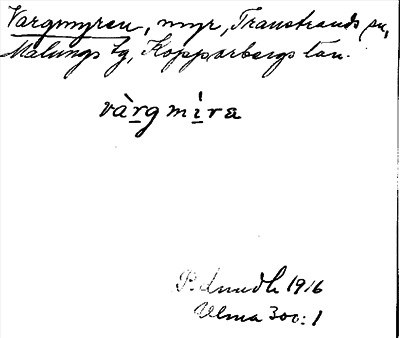 Vargmyren, myr, Transtrands sn,
Malungs tg, Kopparbergs län.
vàrg mìra
P. Lundh 1916
Ulma 300:1